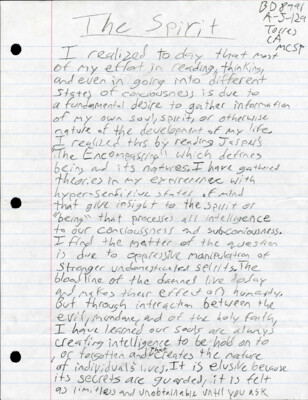 The Spirit
BD8791
A-5-129
Torres
CA
MCSP
I realized to day that most
of my effort in reading, thinking,
and even in going into different
states of conciousness is due to
a fundamental desire to gather information
of my own soul, spirit, or otherwise
nature of the development of my life.
I realized this by reading Jaspers
"The Encompassing" which defines
being and its natures. I have gathered
theories in my experience with
hypersensitive states of mind
that give insight to the spirit or
"being" that processes all intelligence
to our conciousness and subconciousness.
I find the matter of the question
is due to oppressive manipulation of
stranger undomesticated spirits. The
bloodline of the damned live today
and makes their effect on humanity.
But through interaction between the
evil, mundane, and of the holy faith,
I have learned our souls are always
creating intelligence to be hold on to
or forgotten and creates the nature
of individuals lives. It is elusive because
its secrets are guarded, it is felt
as limitless and unobtainable until you ask